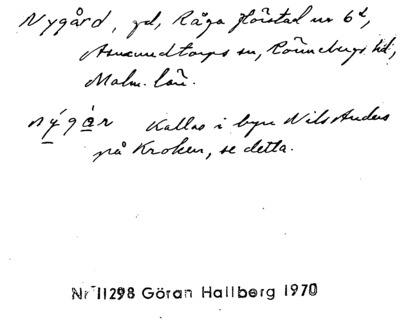 Nygård, gd, Råga Hörstad nr 6²,
Asmundtorps sn, Rönnebergs hd,
Malm. län.
nýgàr Kallas i byn Nils Anders
på Kroken, se detta.
Nr 11298 Göran Hallberg 1970